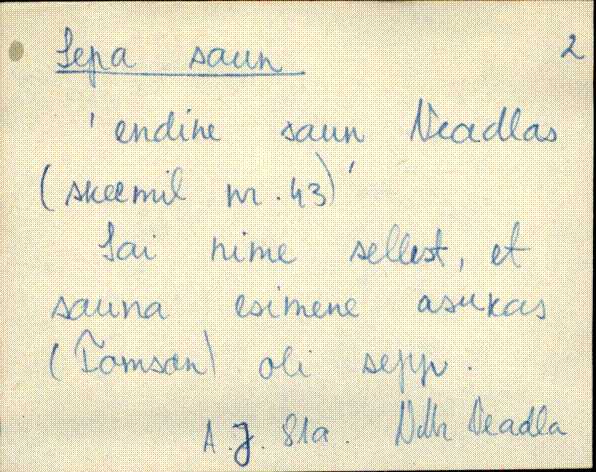 Sepa saun 2
'endine saun Neadlas
(skeemil nr. 43)'
Sai nime sellest, et
sauna esimene asukas
(Tomson) oli sepp.
A. J. 81a. Neadla